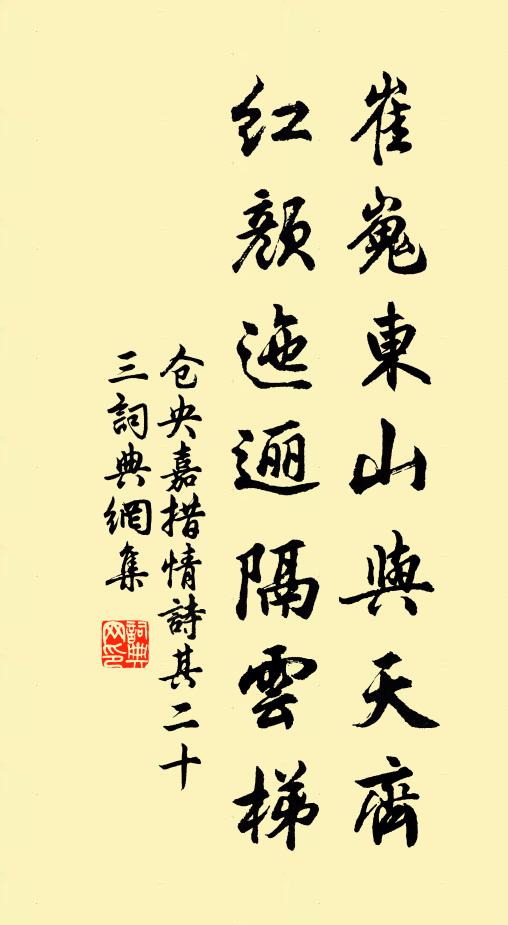 崔嵬東山與天齊
紅顏迤逦隔雲梯
仓央嘉措情詩其二十
三詞典網集
詞典
网印